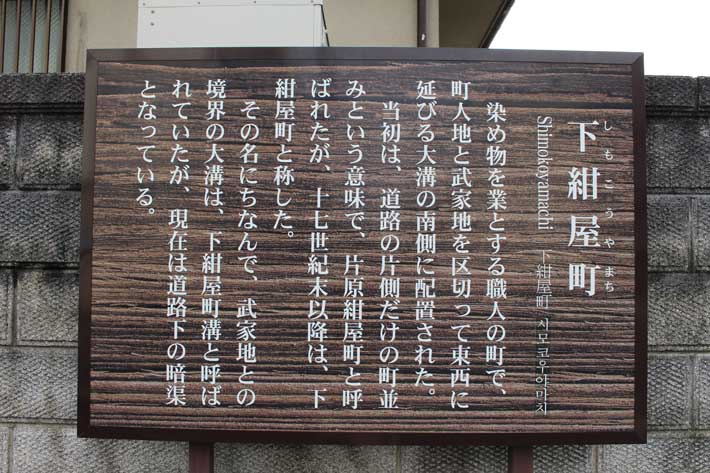 しもこうやまち
下紺屋町
Shimokoyamachi 下紺屋町/시모코우야마치
染め物を業とする職人の町で、
町人地と武家地を区切って東西に
延びる大溝の南側に配置された。
当初は、道路の片側だけの町並
みという意味で、片原紺屋町と呼
ばれたが、十七世紀末以降は、下
紺屋町と称した。
その名にちなんで、武家地との
境界の大溝は、下紺屋町溝と呼ば
れていたが、現在は道路下の暗渠
となっている。